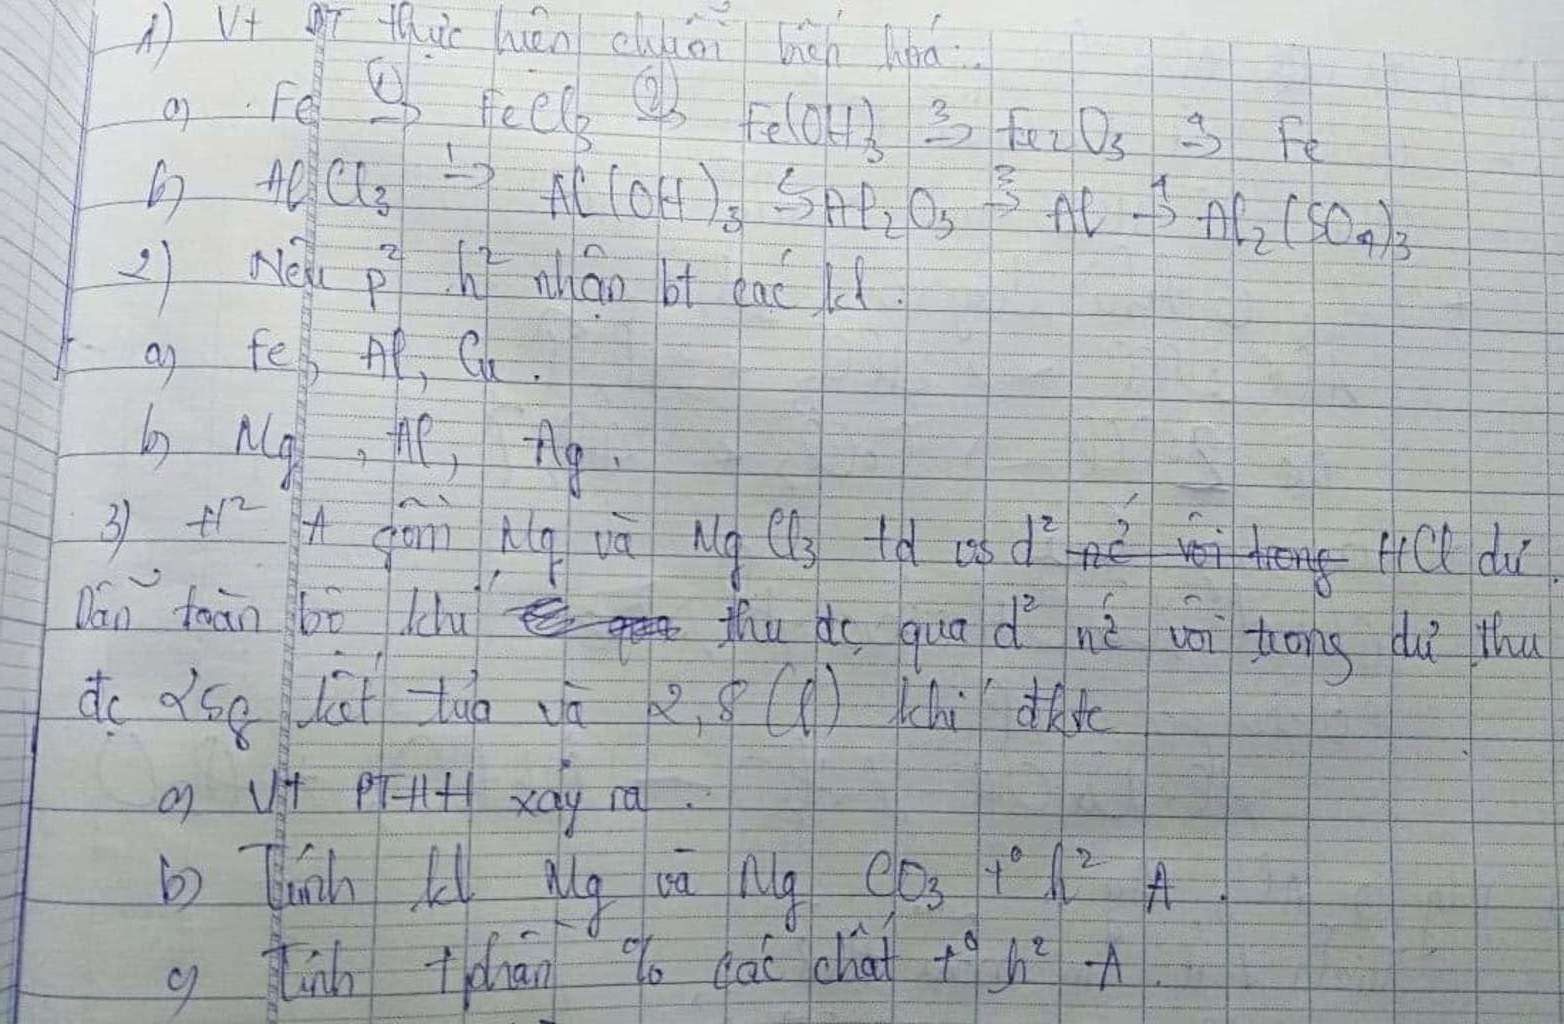 1) Vt PT thực hiện chuỗi biến hoá:
a) Fe ①→ FeCl₃ ②→ Fe(OH)₃ 3→ Fe₂O₃ 4→ Fe
b) AlCl₃ 1→ Al(OH)₃ 2→ Al₂O₃ 3→ Al 4→ Al₂(SO₄)₃
2) Nêu p² h² nhận bt các kl.
a) Fe, Al, Cu.
b) Mg, Al, Ag.
3) H² A gồm Mg và MgCl₃ td vs d² nc vôi trong HCl dư.
Dẫn toàn bộ khí thu đc qua d² nc vôi trong dư thu
đc 25g kết tủa và 2,8 (l) khí đktc
a) Vt PTHH xảy ra.
b) Tính kl Mg và Mg CO₃ t° h² A.
c) Tính tphần % các chất t° h² A.